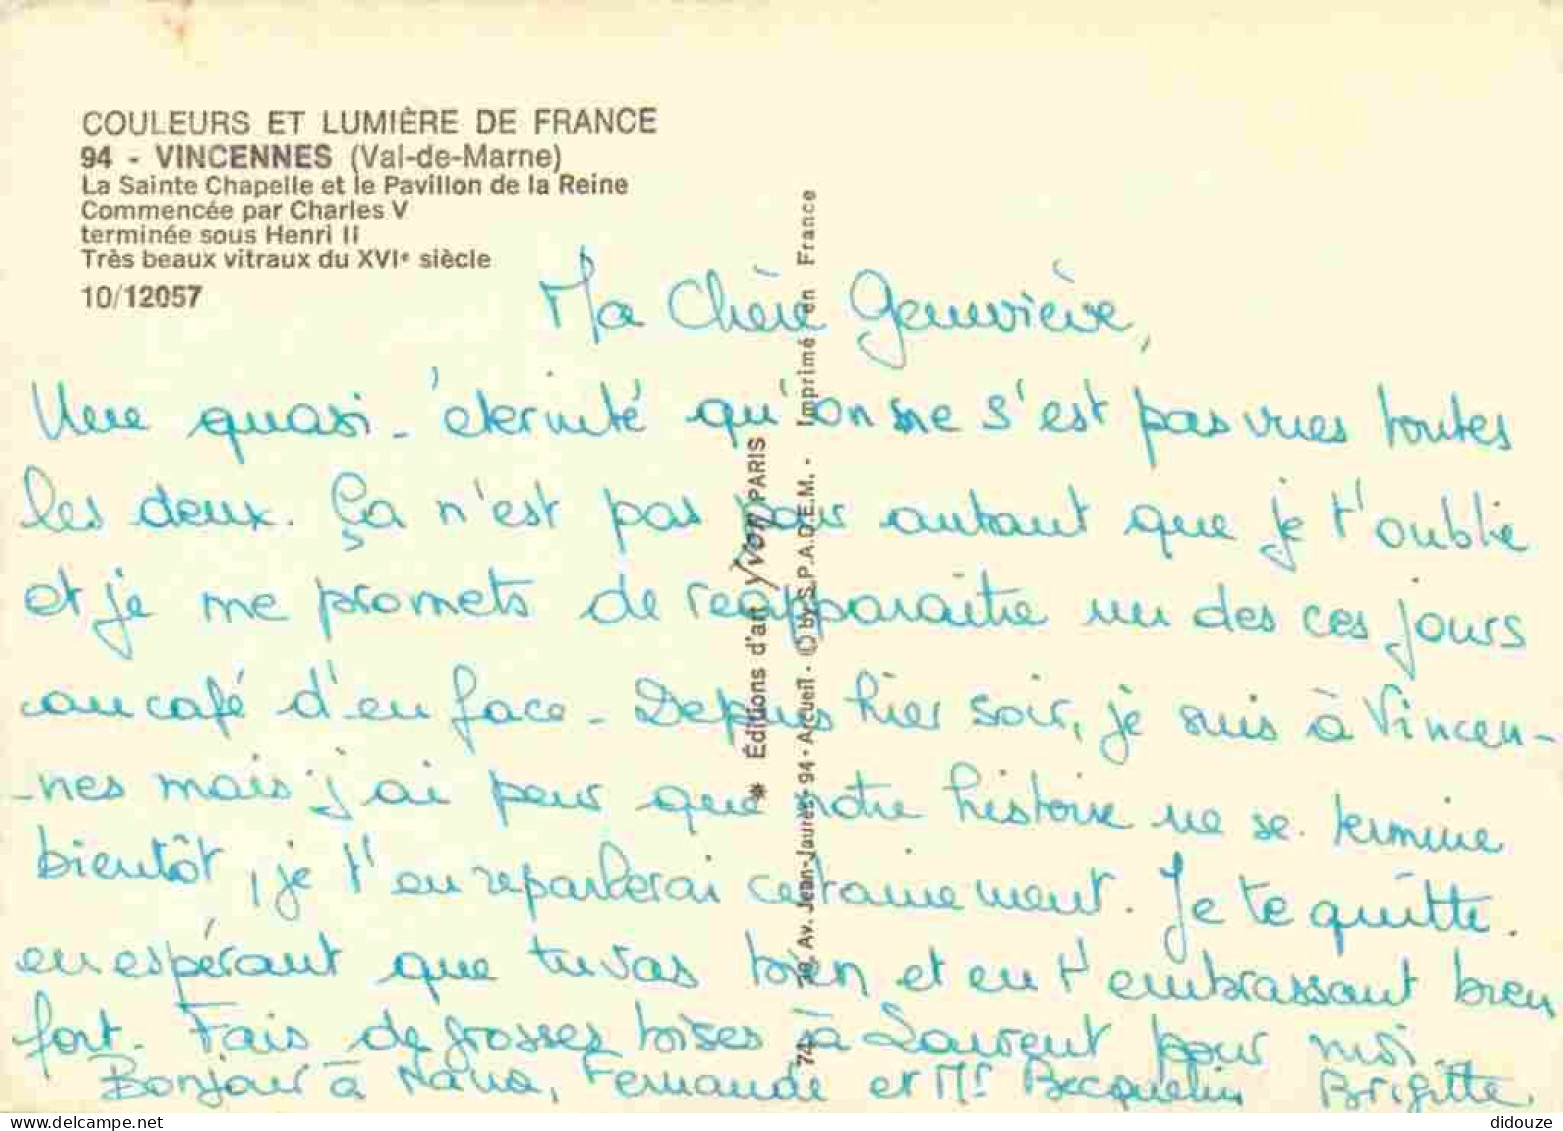 COULEURS ET LUMIÈRE DE FRANCE
94 - VINCENNES (Val-de-Marne)
La Sainte Chapelle et le Pavillon de la Reine
Commencée par Charles V
terminée sous Henri II
Très beaux vitraux du XVIe siècle
10/12057
Ma Chère Geneviève,
Une quasi-éternité qu'on ne s'est pas vues toutes
les deux. Ça n'est pas pour autant que je t'oublie
et je me promets de réapparaître un des ces jours
au café d'en face - Depuis hier soir, je suis à Vincen-
-nes mais j'ai peur que notre histoire ne se termine
bientôt, je t'en reparlerai certainement. Je te quitte.
en espérant que tu vas bien et en t'embrassant bien
fort. Fais de grosses bises à Laurent pour moi.
Bonjour à Nana, Fernande et Mr Becquelin Brigitte
* Éditions d'art Yvon PARIS
74, Av. Jean-Jaurès - 94 - Arcueil - © by S.P.A.D.E.M. - Imprimé en France
didouze